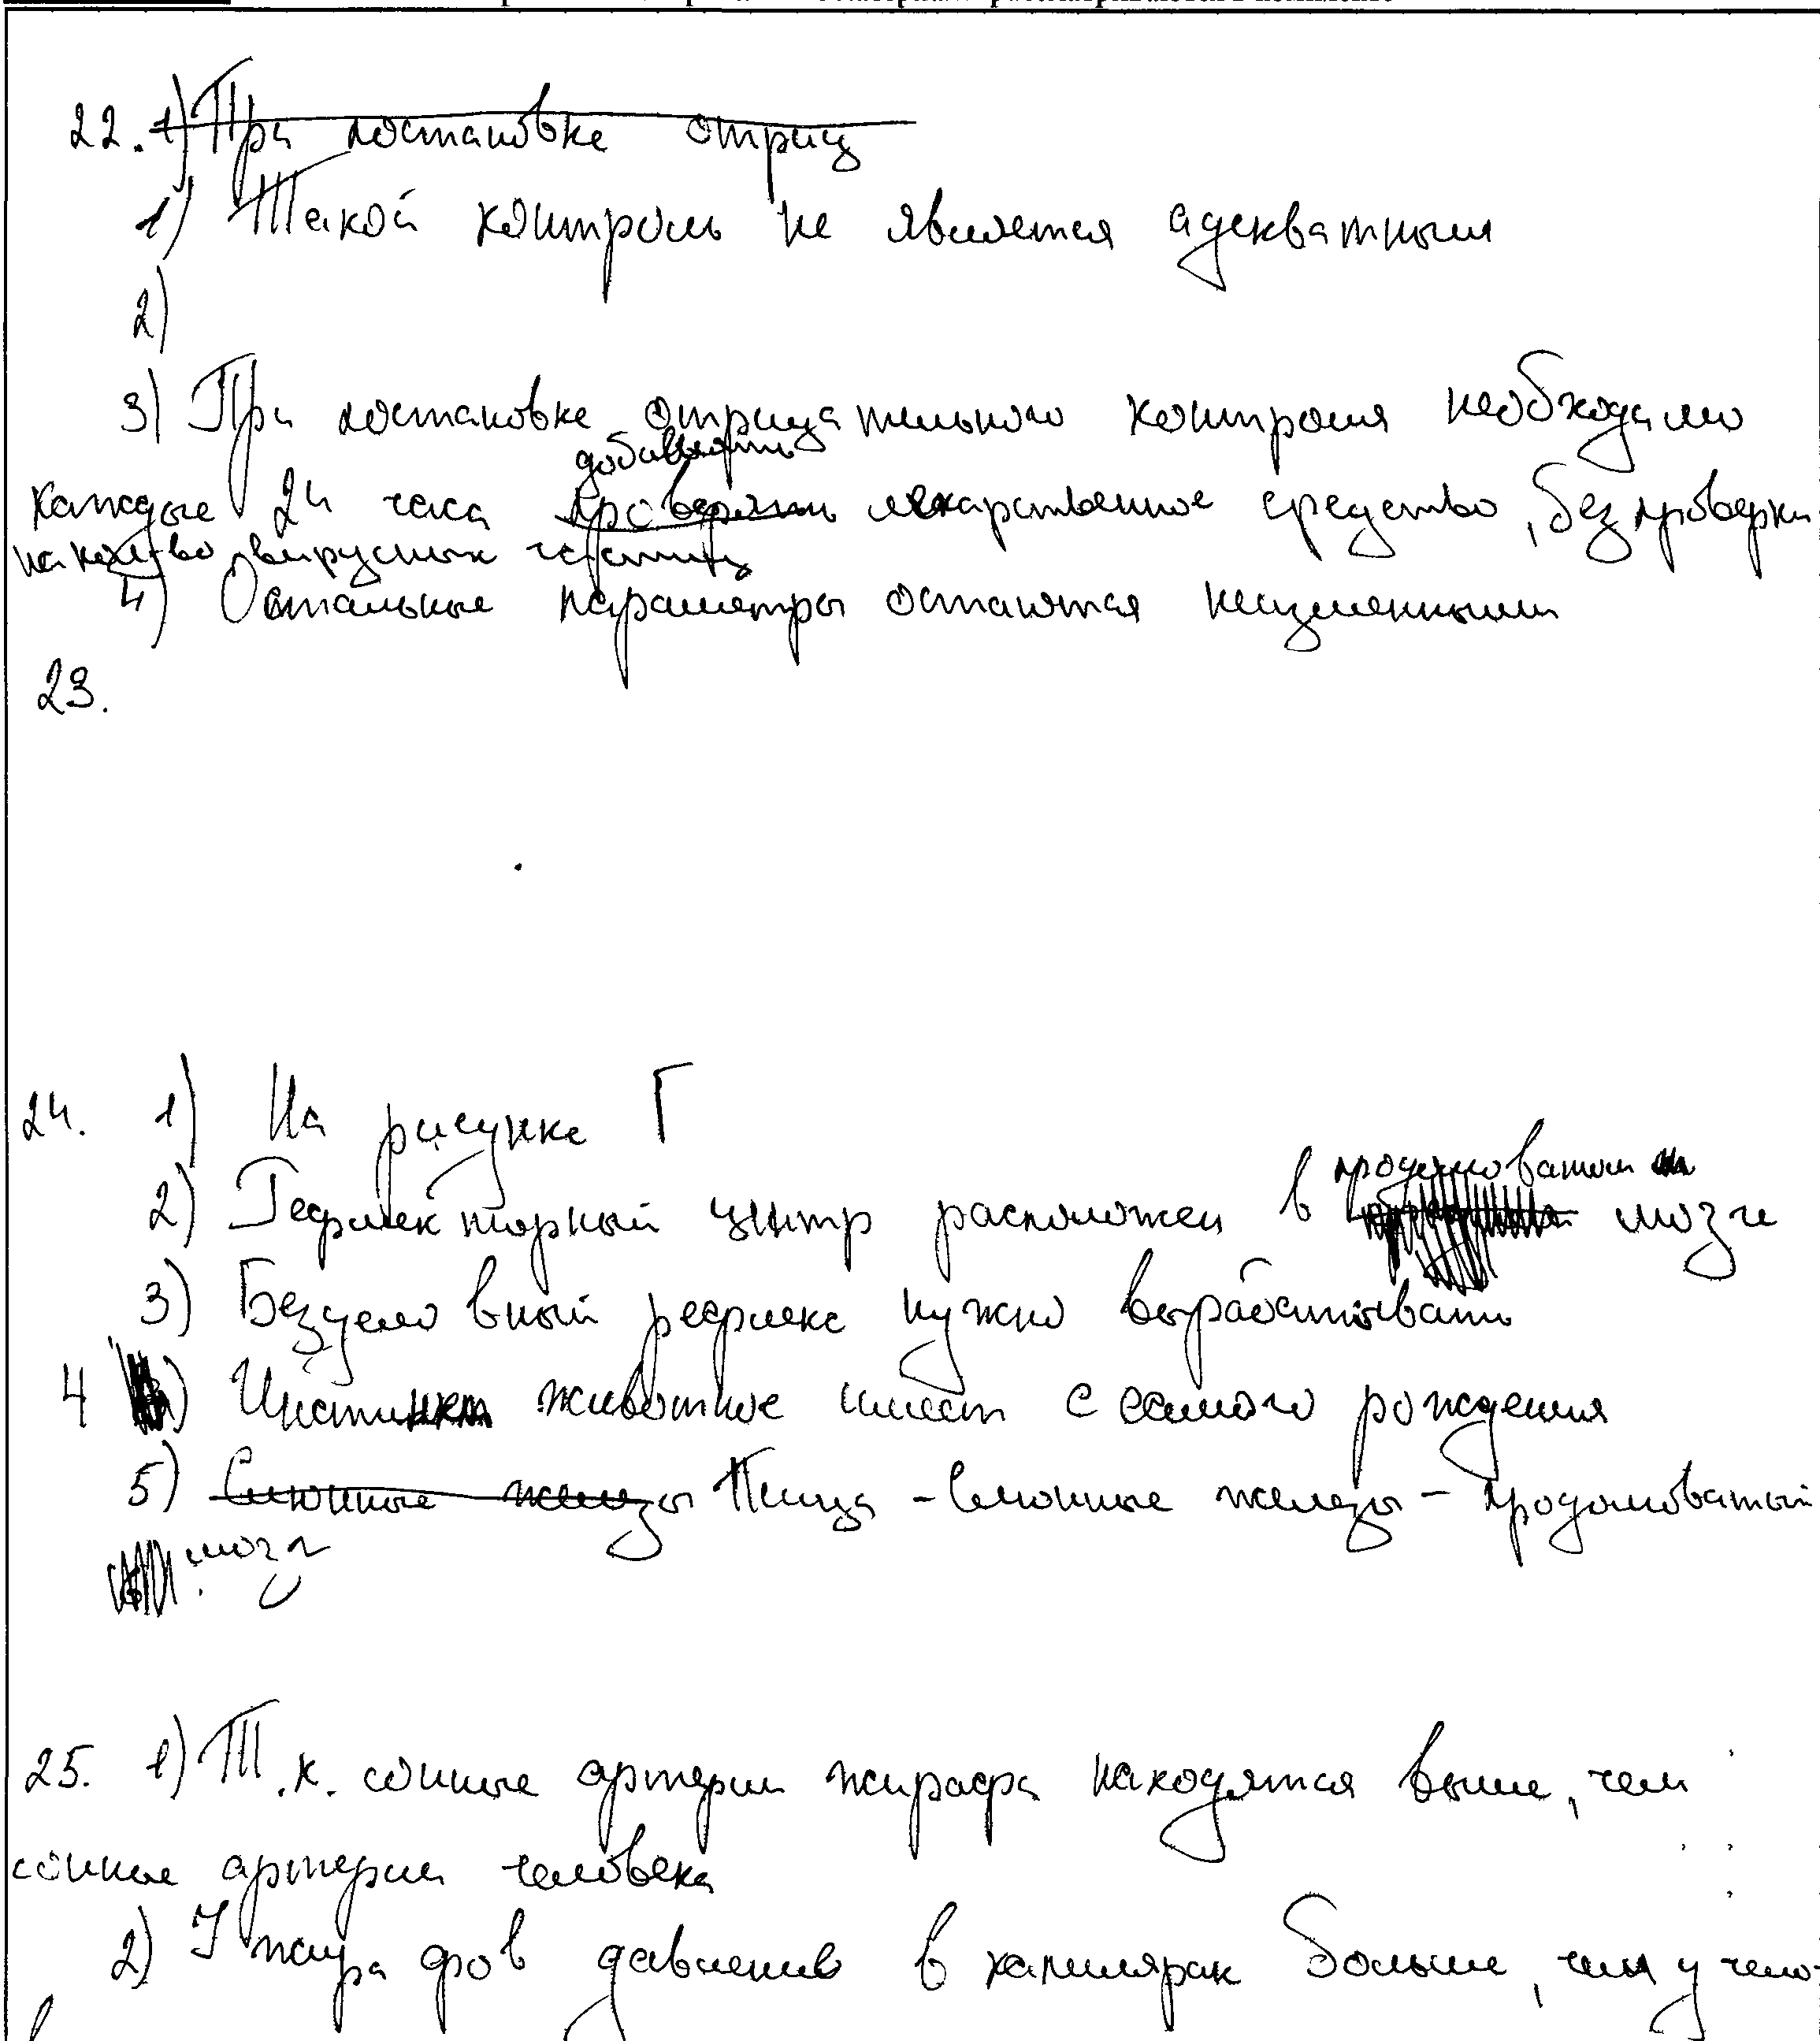 22. 1) При постановке отриц
1) Такой контроль не является адекватным
2)
3) При постановке отрицательного контроля необходимо
добавлять
каждые 24 часа проверять лекарственное средство, без проверки
на кол-во вирусных частиц
4) Остальные параметры остаются неизменными
23.
24. 1) На рисунке Г
продолговатом
2) Рефлекторный центр расположен в мозге
3) Безусловный рефлекс нужно вырабатывать
4) Инстинкт животное имеет с самого рождения
5) Слюнные железы Пища - слюнные железы - продолговатый
мозг
25. 1) Т.к. сонные артерии жирафа находятся выше, чем
сонные артерии человека
2) У жирафов давление в капилярах больше, чем у чело-